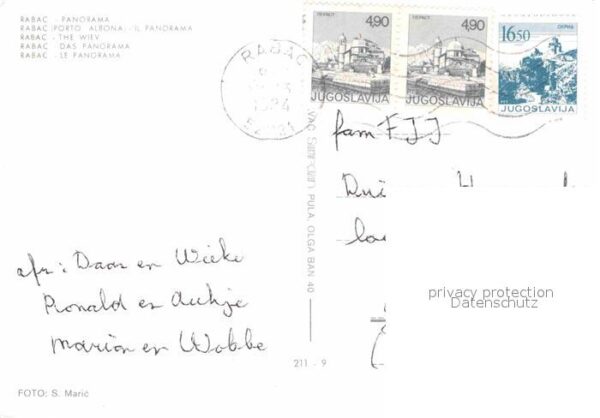 RABAC - PANORAMA
RABAC (PORTO ALBONA) - IL PANORAMA
RABAC - THE WIEV
RABAC - DAS PANORAMA
RABAC - LE PANORAMA
4,90
JUGOSLAVIJA
4,90
JUGOSLAVIJA
16.50
JUGOSLAVIJA
RABAC
1984
fam FJJ
afz: Daan en Wieke
Ronald en Aukje
Marion en Wobbe
PULA, OLGA BAN 40
211 - 9
FOTO: S. Marić
privacy protection
Datenschutz